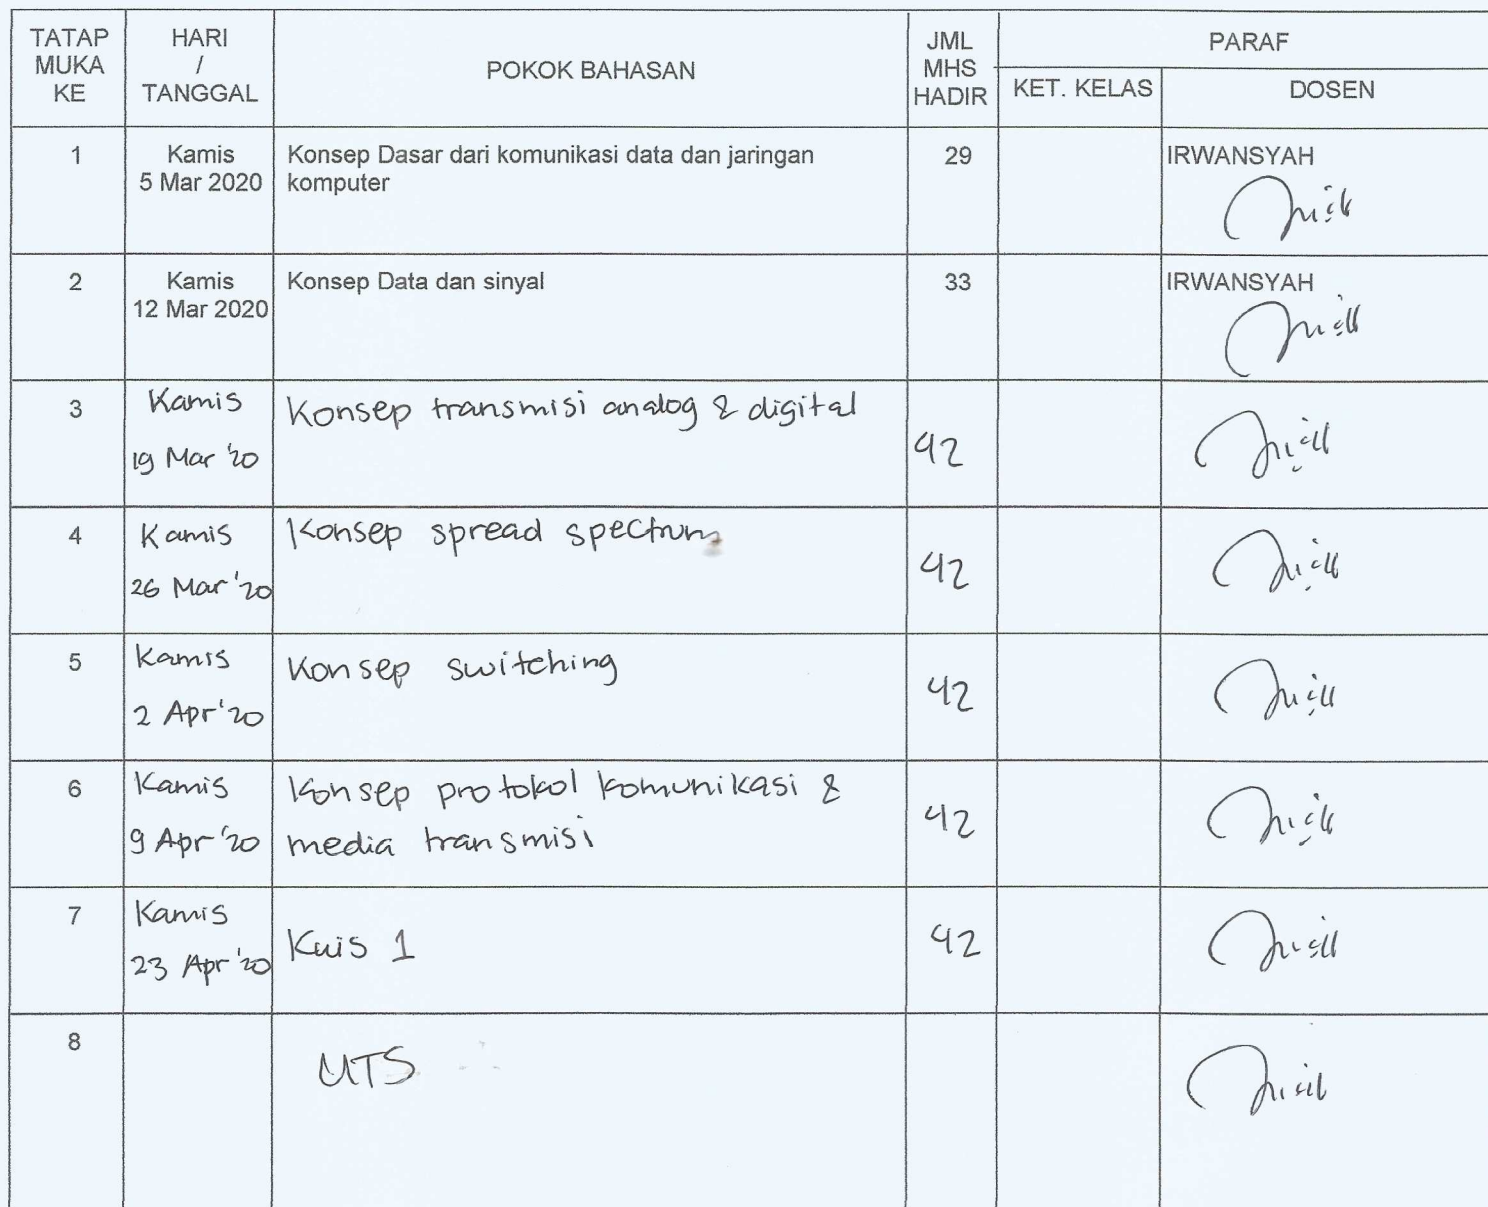 TATAP MUKA KE
HARI / TANGGAL
POKOK BAHASAN
JML MHS HADIR
PARAF
KET. KELAS
DOSEN
1
Kamis
5 Mar 2020
Konsep Dasar dari komunikasi data dan jaringan
komputer
29
IRWANSYAH
2
Kamis
12 Mar 2020
Konsep Data dan sinyal
33
IRWANSYAH
3
Kamis
19 Mar '20
Konsep transmisi analog & digital
42
4
Kamis
26 Mar '20
Konsep spread spectrum
42
5
Kamis
2 Apr '20
Konsep switching
42
6
Kamis
9 Apr '20
Konsep protokol komunikasi &
media transmisi
42
7
Kamis
23 Apr '20
Kuis 1
42
8
UTS